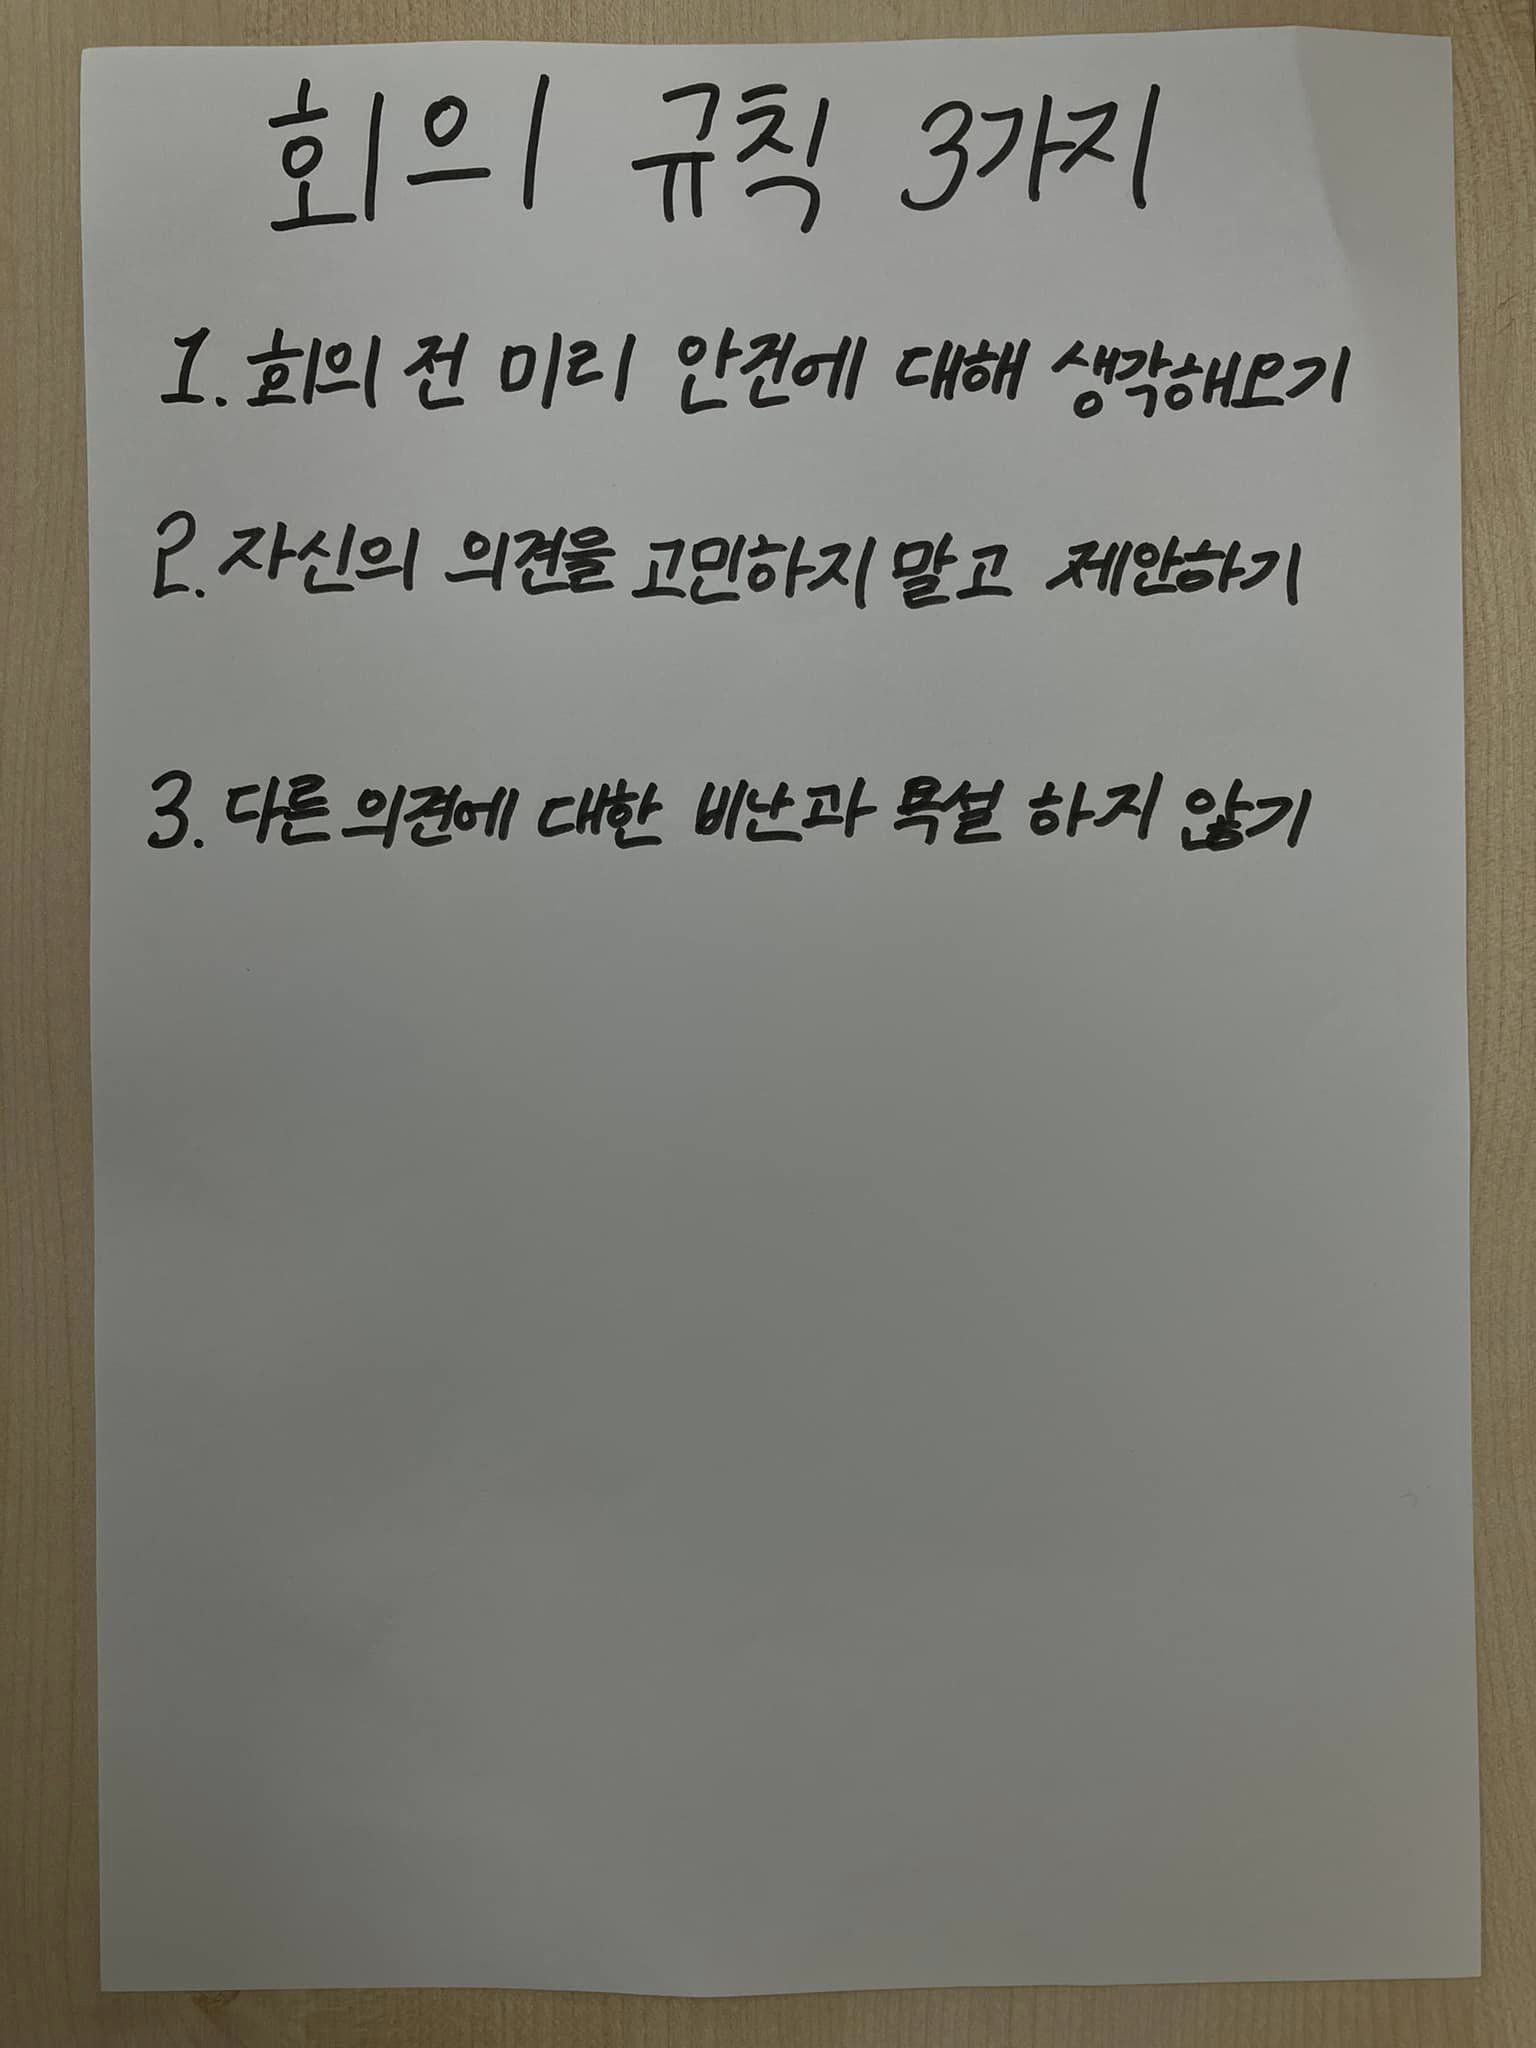 회의 규칙 3가지
1. 회의 전 미리 안건에 대해 생각해오기
2. 자신의 의견을 고민하지 말고 제안하기
3. 다른 의견에 대한 비난과 욕설 하지 않기